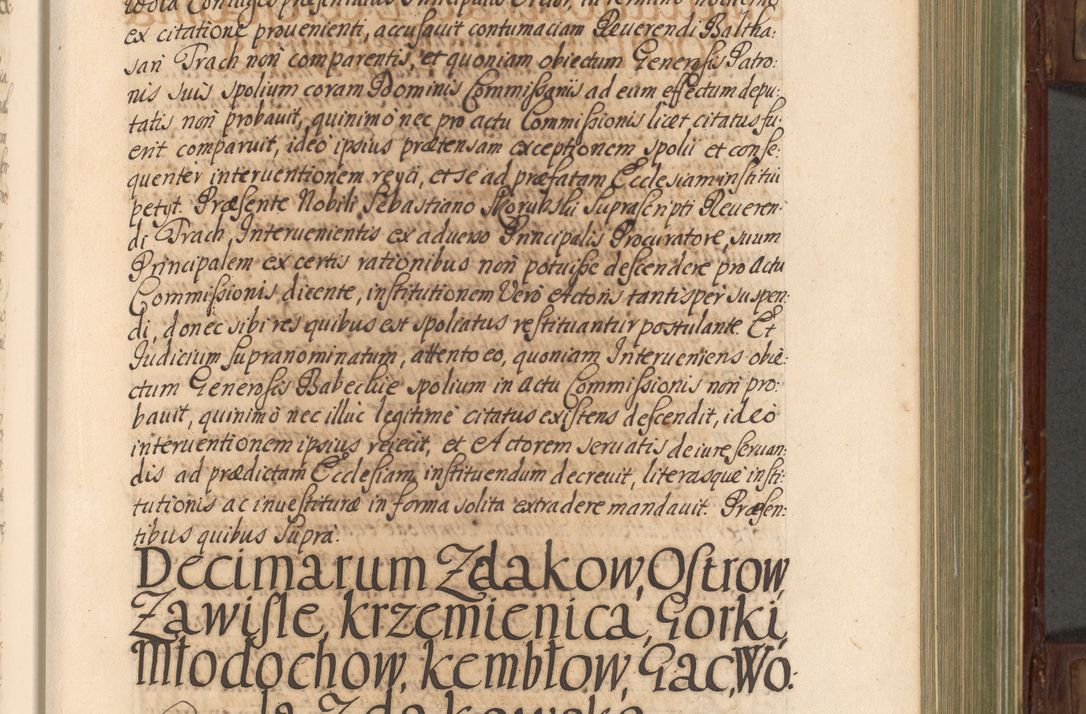 ex citatione prouenienti, accusauit contumaciam Reuerendi Baltha:
sari Trach non comparentis, et quoniam obiectum Generosis Patro:
nis suis spolium coram Dominis Commissarijs ad eum effectum depu:
tatis non probauit, quinimo nec pro actu Commissionis licet citatus fu:
erit comparuit, ideo ipsius prætensam exceptionem spolii et conse:
quenter interuentionem reyci, et se ad præfatam Ecclesiam institui
petyt. Præsente Nobili Sebastiano Skorulski suprascripti Reueren:
di Trach, Interuenientis ex aduerso Principalis Procuratore, suum
Principalem ex certis rationibus non potuisse descendere pro actu
Commissionis dicente, institutionem Vero Actoris tantisper suspen:
di, donec sibi res quibus est spoliatus restituantur postulante. Et
Iudicium supranominatum, attento eo, quoniam Interueniens obie:
ctum Generosis Babeckie spolium in actu Commissionis non pro:
bauit, quinimo nec illuc legitime citatus existens descendit, ideo
interuentionem ipsius reiecit, et Actorem seruatis de iure seruan:
dis ad prædictam Ecclesiam instituendum decreuit, literasque insti:
tutionis ac inuestituræ in forma solita extradere mandauit. Præsen:
tibus quibus supra.
Decimarum Zdakow, Ostrow,
Zawisle, krzemienica, Gorki,
Młodochow, kembłow, Gac, Wo:
la Zdakowska